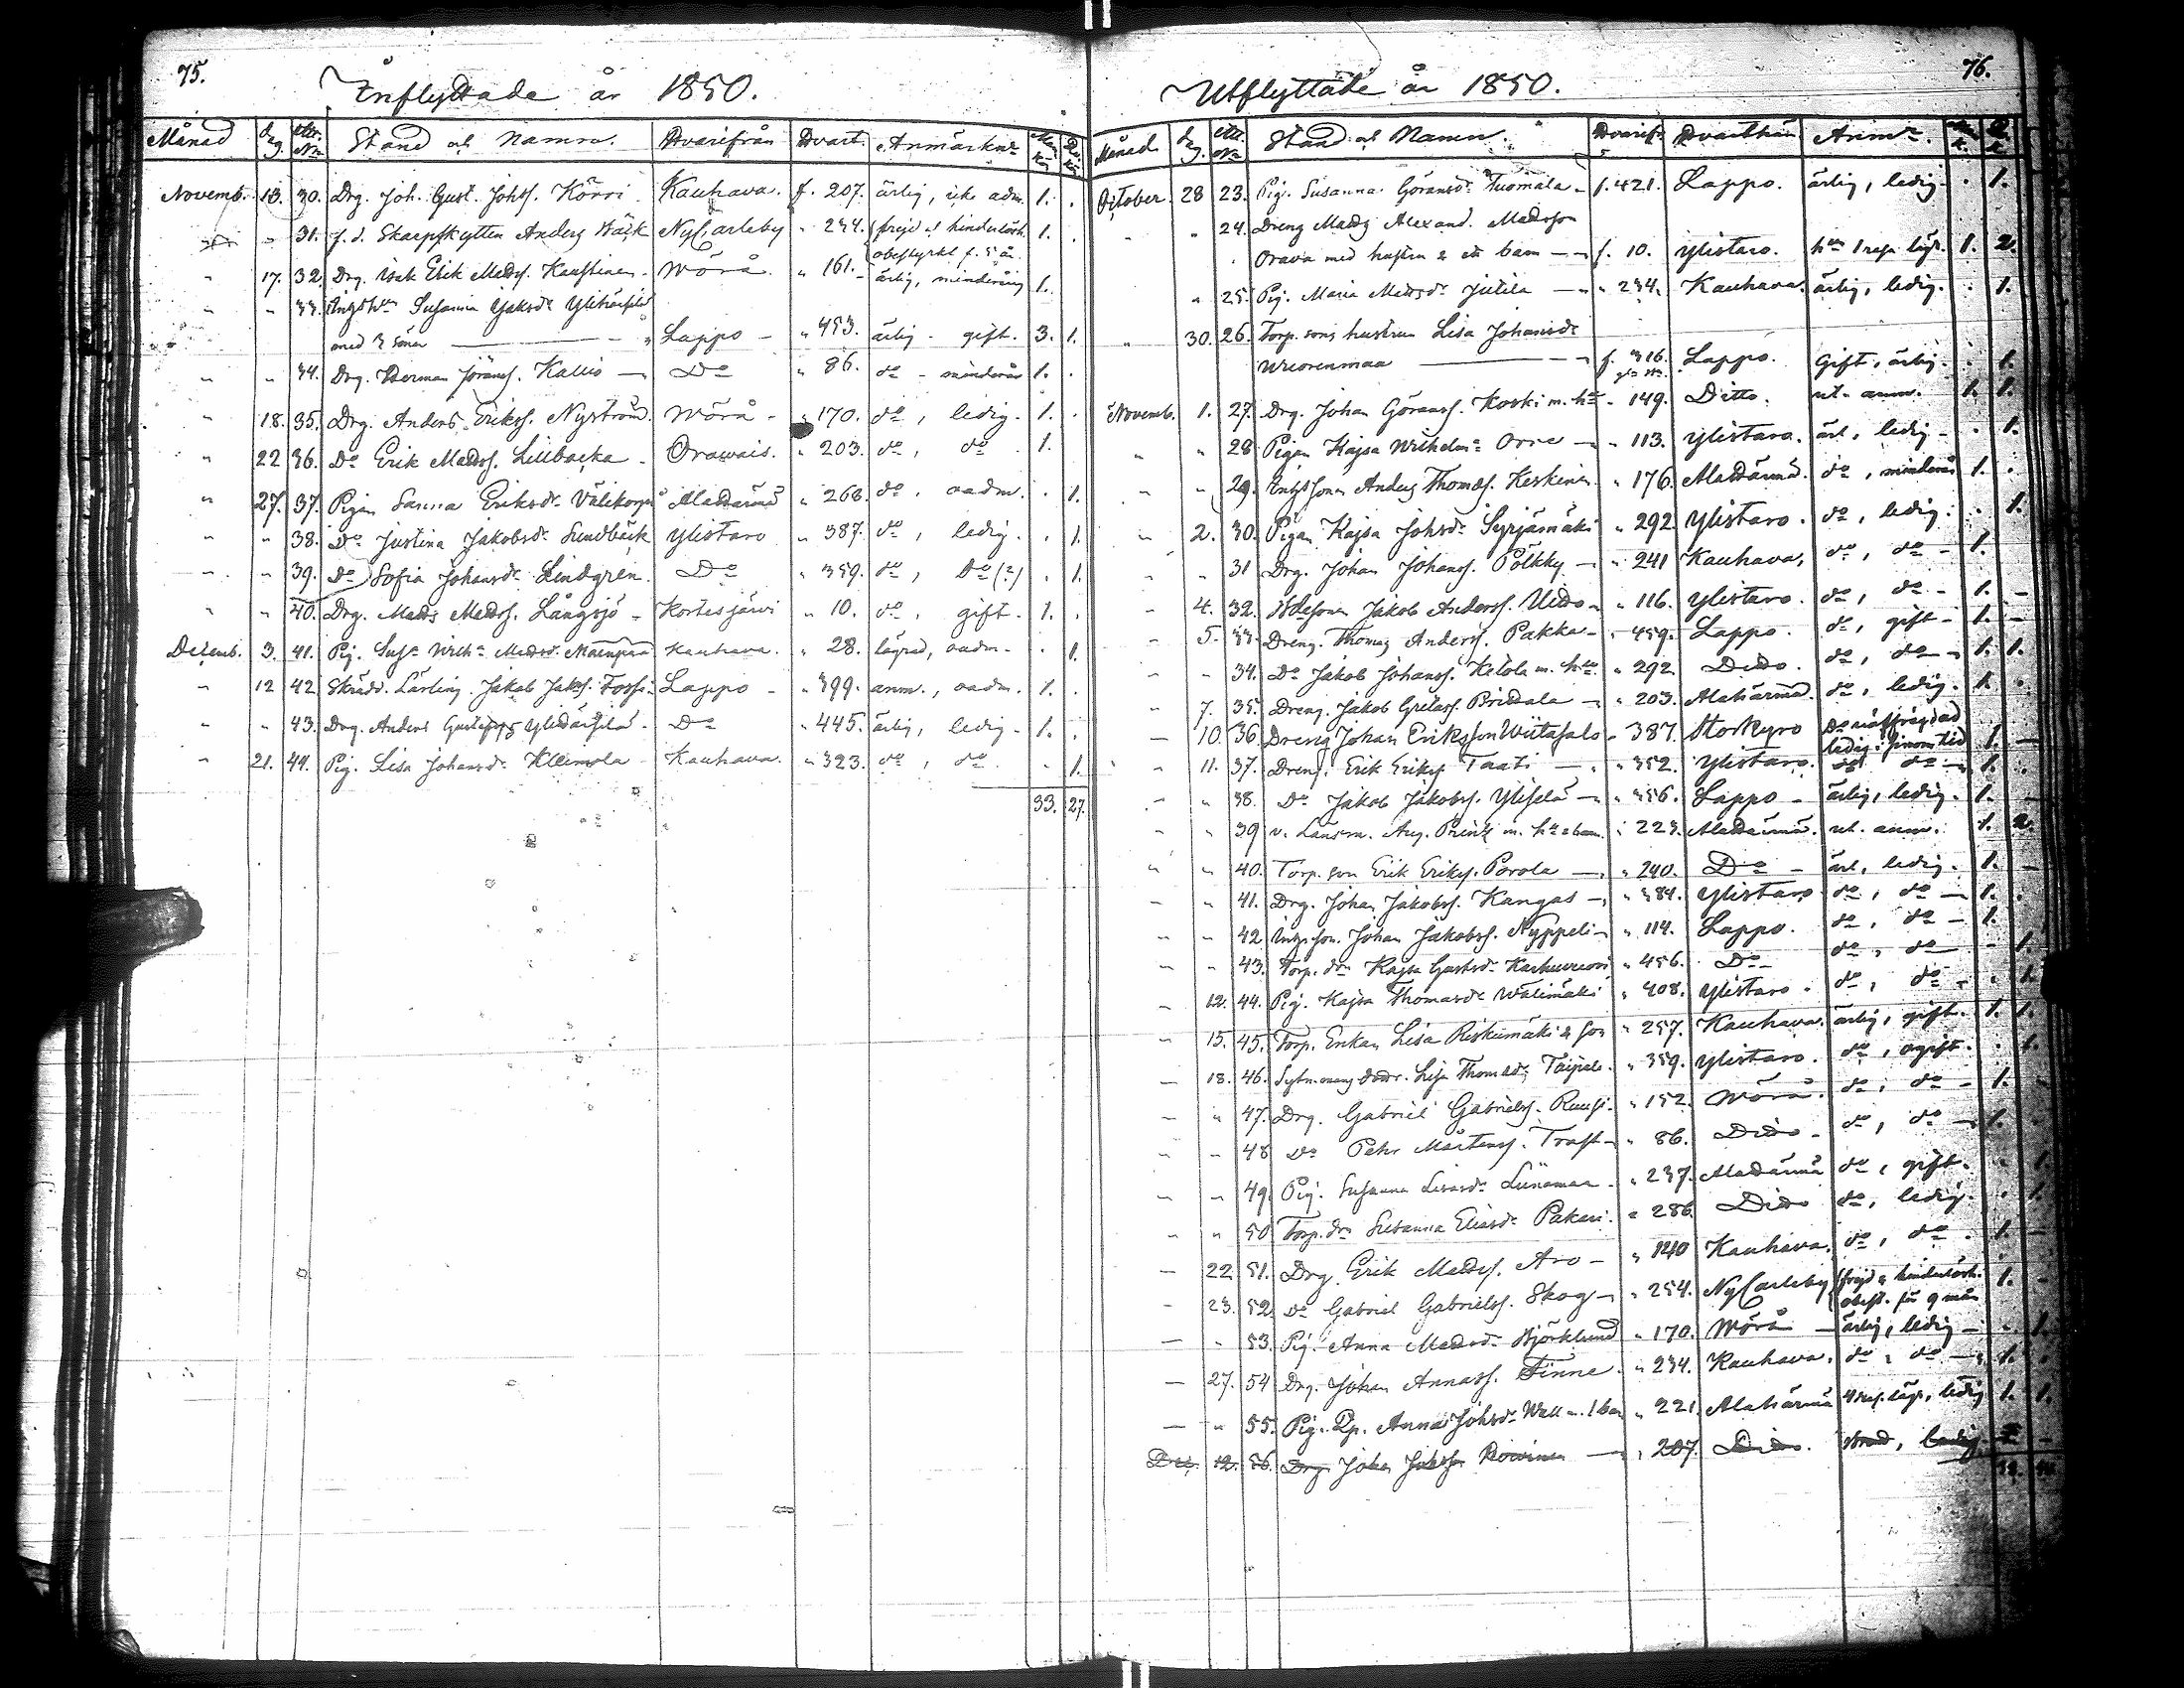 75.
Inflyttade år 1850.
Månad dag. Att. No Stånd och Namn. Hvarifrån Hvart. Anmärkn. Man kön Qv. kön
Novemb. 13. 30. Drg. Joh. Gust. Johss. Körri Kauhava. f. 207. ärlig, icke adm. 1.
" 31. f. d. Skarpskytten Anders Bäck NyCarleby " 234. frejd o hinderlösh. 1.
obestyrkt f. 5 år.
" 17. 32. Drg. Isak Erik Matss. Kaustinen Wörå. " 161. ärlig, minderårig 1.
" " 33. Susanna Jakobsdr Ylihärsilä
med 3 söner Lappo " 453. ärlig. gift. 3. 1.
" " 34. Drg. Herman Jöranss. Kallio Do " 86. do - minderår 1.
" 18. 35. Drg. Anders Erikss. Nyström. Wörå " 170. do, ledig. 1.
" 22 36. Do Erik Matss. Lillbacka Orawais. " 203. do, do 1.
" 27. 37. Pigan Sanna Eriksdr Välikorpi Alahärmä " 268. do, oadm. 1.
" " 38. Do Justina Jakobsdr Sundbäck Ylistaro " 387. do, ledig. 1.
" " 39. Do Sofia Johansdr Lindgren. Do " 359. do, Do (?) 1.
" " 40. Drg. Matts Matss. Långsjö Kortesjärvi " 10. do, gift. 1.
Decemb. 3. 41. Pig. Kauhava. " 28. lägrad, oadm. 1.
" 12 42 Skrädd. Lärling. Jakob Jakss. Fossi Lappo " 399. anm., oadm. 1.
" " 43. Drg. Anders Do " 445. ärlig, ledig. 1.
" 21. 44. Pig. Lisa Johansdr Kleimola Kauhava. " 323. do, do. 1.
33. 27.
76.
Utflyttade år 1850.
Månad Dag. Att. No Stånd och Namn. Hvarifr. Hvarthän Anm.
October. 28 23. Pig. Susanna Göransdr Tuomala f. 421. Lappo. ärlig, ledig. 1.
" " 24. Dreng Matts Alexand. Matsson
Orava med hustru & ett barn f. 10. Ylistaro. 1. 2.
" 25. Pig. Maria Mattsdr Jutila " 234. Kauhava. ärlig, ledig. 1.
" 30. 26. Torp. sons hustrun Lisa Johansdr
Wuorenmaa f. 316. Lappo. Gift, ärlig. 1.
Novemb. 1. 27. Drg. Johan Göranss. Koski m. hu 149. Ditto. ut. anm. 1. 1.
" " 28 Pigan Kajsa Wilhelm. Orre " 113. Ylistaro. ärl, ledig 1.
" " 29. Anders Thomass. Keskinen " 176. Alahärmä. do, minderår 1.
" 2. 30. Pigan Kajsa Johsdr Syrjämäki " 292 Ylistaro. do, ledig. 1.
" " 31 Drg. Johan Johanss. Pölkky " 241 Kauhava, do, do 1.
" 4. 32. Jakob Anderss. Uitto " 116. Ylistaro. do, do 1.
" 5. 33. Dreng. Thomas Anderss. Pakka 459. Lappo. do, gift 1.
" " 34. Do Jakob Johanss. Ketola m. hu " 292 Ditto. do, do 1. 1.
" 7. 35. Dreng. Jakob " 203. Alahärmä. do, ledig. 1.
10. 36 Dreng Johan Eriksson Wiitasalo 387. Storkyro ledig 1.
" 11. 37. Dreng. Erik Erikss. Taati " 352. Ylistaro. do do 1.
" " 38. Do Jakob Jakobss. Yliselä " 356. Lappo ärlig, ledig. 1.
" " 39 v. Länsm. Aug. Printz m. hu & barn. 223. Alahärmä. ut. anm. 1. 2.
" " 40. Torp. son Erik Erikss. Porola " 240. Do ärl, ledig. 1.
" " 41. Drg. Johan Jakobss. Kangas " 384. Ylistaro do, do 1.
" " 42 Johan Jakobss. Nyppeli " 114. Lappo. do, do 1.
" " 43. Torp. dr Kajsa Gustsdr Karhuvuori " 456. Do do, do 1.
" 12. 44. Pig. Kajsa Thomasdr Wälimäki " 408. Ylistaro. do, do 1.
" 15. 45. Torp. Enkan Lisa Riskumäki & son " 257. Kauhava. ärlig, gift. 1. 1.
18. 46. Lisa Thomasdr Taipale. " 359. Ylistaro. do, ogift. 1.
" 47. Drg. Gabriel Gabrielss. Ruusi " 152. Wörå. do, do 1.
" " 48 Do Pehr Mårtenss. Trast " 86. Ditto. do, do 1.
" " 49. Pig. Susanna Liinamaa " 237. Alahärmä do, gift. 1.
" " 50 Torp. dr Susanna Eliasdr Pakari. " 286. Ditto do, ledig. 1.
22 51. Drg. Erik Matss. Aro " 140 Kauhava. do, do. 1.
23. 52 Do Gabriel Gabrielss. Skog " 254. NyCarleby frejd & hinderlösh. 1.
obest. för 9 mån
" 53. Pig. Anna Matsdr Björklund " 170. Wörå ärlig, ledig 1.
27. 54 Drg. Johan Annass. Finne " 234. Kauhava. do, do 1.
" 55. Pig. Anna Johsdr Wall m. 1 barn " 221. Alahärmä ledig 1. 1.
Dec. 12. 56. Drg. Johan " 207. Ditto.